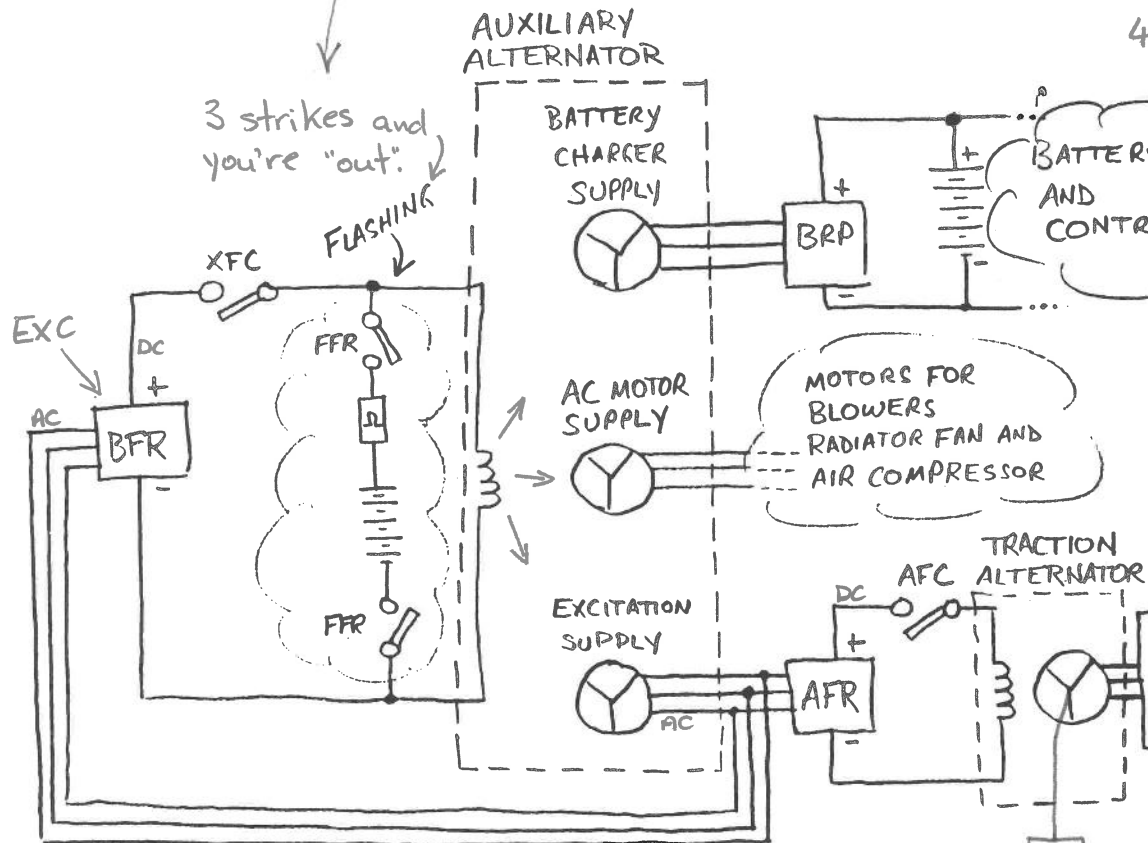 AUXILIARY
ALTERNATOR
4
3 strikes and
you're "out".
FLASHING
BATTERY
CHARGER
SUPPLY
BRP
+
-
+
-
BATTERY
AND
XFC
EXC
DC
+
AC
BFR
-
FFR
Ω
FFR
AC MOTOR
SUPPLY
MOTORS FOR
BLOWERS
RADIATOR FAN AND
AIR COMPRESSOR
EXCITATION
SUPPLY
AC
DC
AFC
+
AFR
-
TRACTION
ALTERNATOR